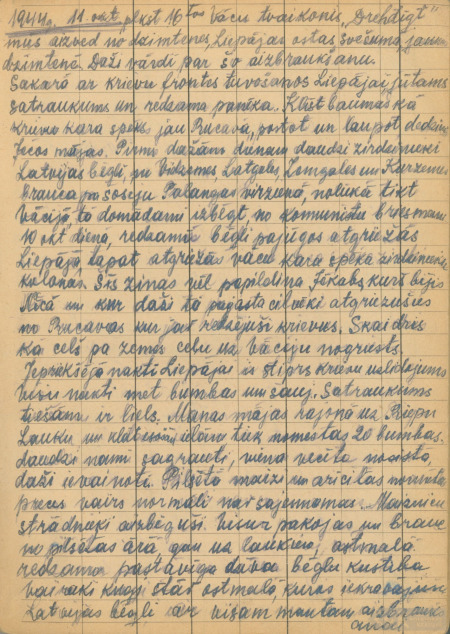 1944.g. 11. okt. plkst 16 tos Vācu tvaikonis „Drehtigt"
mūs aizved no dzimtenes, Liepājas ostas svešumā, jaunā
dzimtenē. Daži vārdi par šo aizbraukšanu.
Sakarā ar krievu frontes tuvošanos Liepājai jūtams
satraukums un redzama panika. Klīst baumas kā
krievu kara spēks jau Rucavā, postot un laupot dedzina
Jecos mājas. Pirms dažām dienām daudzi zirdzinieki
Latvijas bēgļi, no Vidzemes, Latgales, Zemgales un Kurzemes
brauca pa šoseju Palangas virzienā, nolūkā tikt
Vācijā, tā domādami izbēgt no komunistu briesmām
10 okt dienā, redzamā bēgļi pajūgos atgriežās
Liepājā, tagad atgriežas vācu kara spēka
kolonas. Šīs ziņas vēl papildina Jēkabs, kurš bijis
Nīcā un kur daži tā pagasta cilvēki atgriezušies
no Rucavas un jau redzējuši krievus. Skaidrs
kā ceļš pa zemes ceļu uz Vāciju nogriezts.
Iepriekšējā naktī Liepājai ir stiprs krievu uzlidojums
visu nakti met bumbas un šauj. Satraukums
tiešām ir liels. Manas mājas rajonā uz Riepu
Lauku un klāt ielām tiek nomestas 20 bumbas.
daudzi nami sagrauti, viena vecīte nosista,
daži ievainoti. Pilsētā maizi un arī citas normētas
preces vairs normāli nav saņemamas. Maiznieku
strādnieki aizbēguši. Visur pakojas un brauc
no pilsētas ārā, gan uz laukiem, ostmalā
redzama pastāvīga bēgļu kustība
vairāki kuģi stāv ostmalā, kuros iekravājušies
Latvijas bēgļi ar visām mantām aizbraukšanai